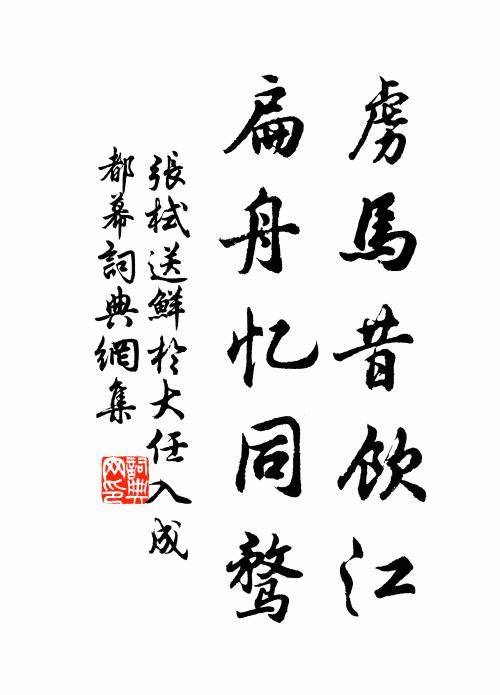 虏馬昔飲江
扁舟忆同鹜
張栻送鮮於大任入成
都幕詞典網集
詞典網印